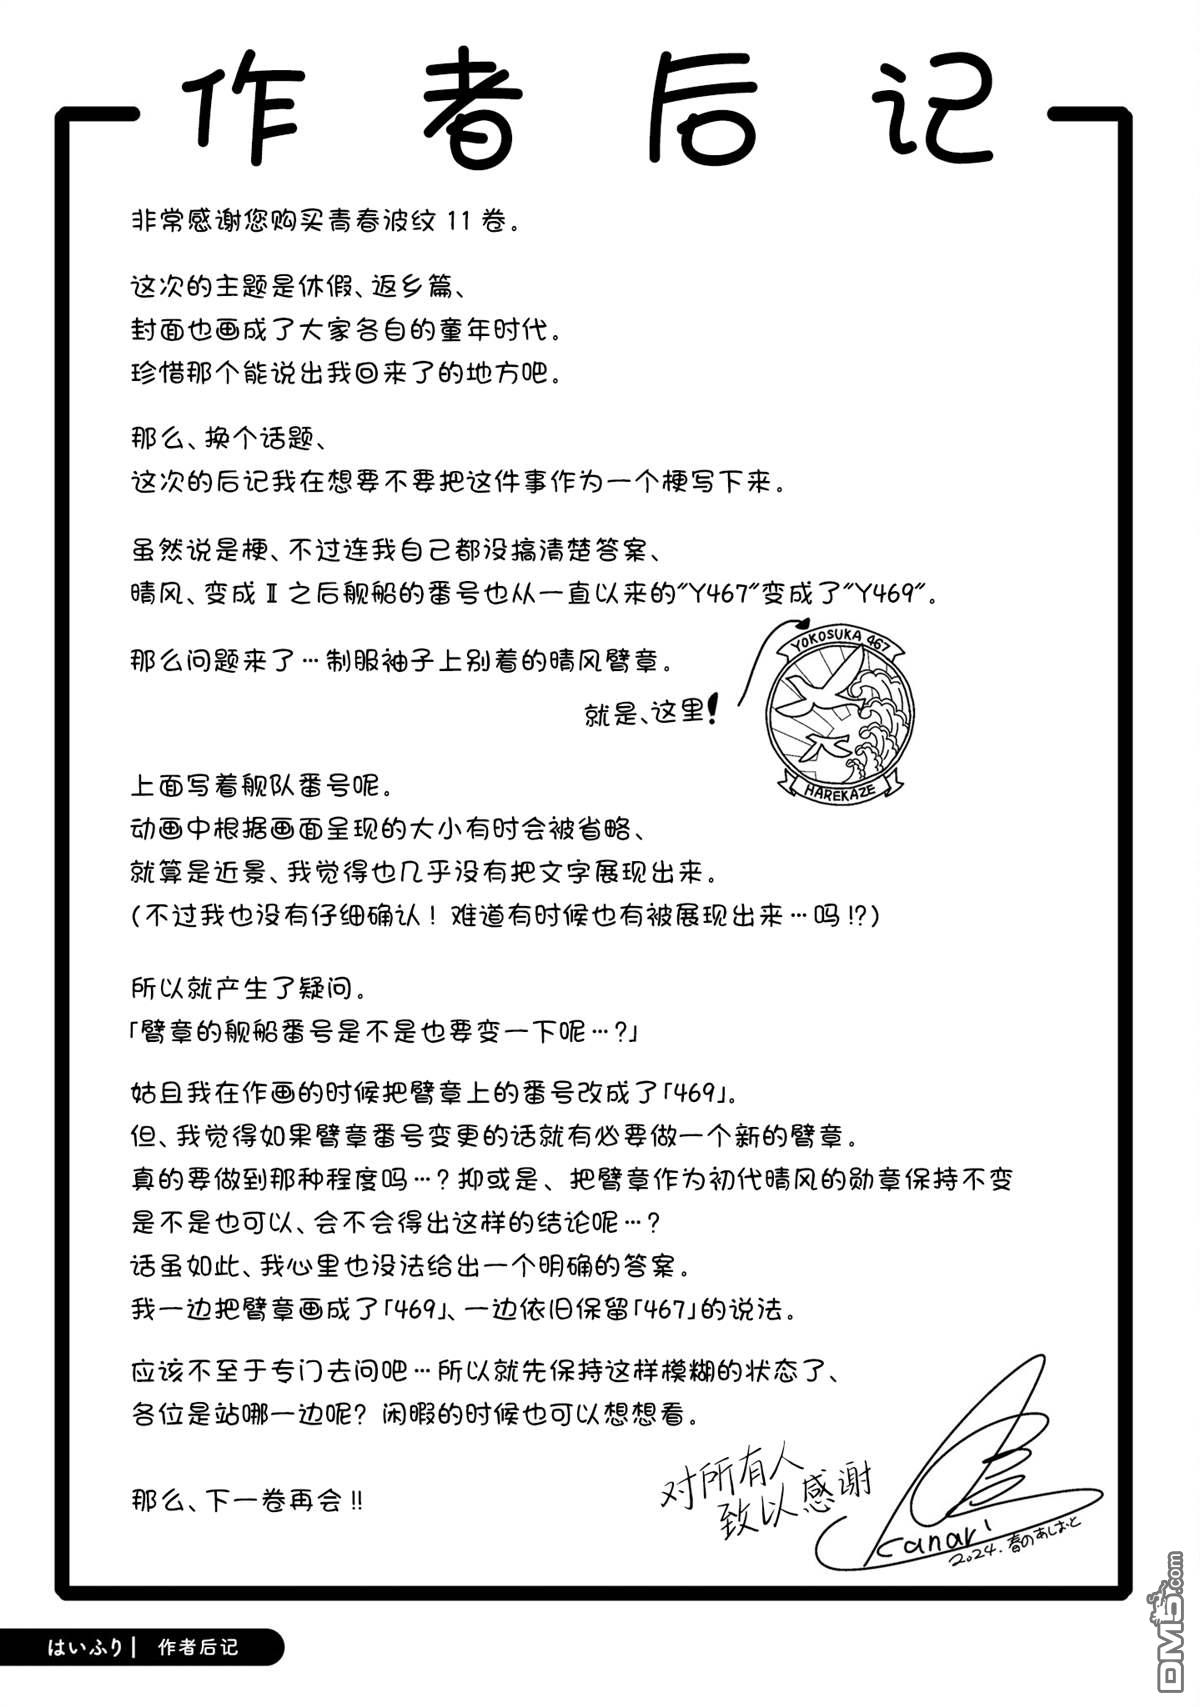 作者后记
非常感谢您购买青春波纹 11 卷。
这次的主题是休假、返乡篇、
封面也画成了大家各自的童年时代。
珍惜那个能说出我回来了的地方吧。
那么、换个话题、
这次的后记我在想要不要把这件事作为一个梗写下来。
虽然说是梗、不过连我自己都没搞清楚答案、
晴风、变成Ⅱ之后舰船的番号也从一直以来的"Y467"变成了"Y469"。
那么问题来了…制服袖子上别着的晴风臂章。
就是、这里!
YOKOSUKA 467
HAREKAZE
上面写着舰队番号呢。
动画中根据画面呈现的大小有时会被省略、
就算是近景、我觉得也几乎没有把文字展现出来。
(不过我也没有仔细确认! 难道有时候也有被展现出来…吗!?)
所以就产生了疑问。
「臂章的舰船番号是不是也要变一下呢…?」
姑且我在作画的时候把臂章上的番号改成了「469」。
但、我觉得如果臂章番号变更的话就有必要做一个新的臂章。
真的要做到那种程度吗…? 抑或是、把臂章作为初代晴风的勋章保持不变
是不是也可以、会不会得出这样的结论呢…?
话虽如此、我心里也没法给出一个明确的答案。
我一边把臂章画成了「469」、一边依旧保留「467」的说法。
应该不至于专门去问吧…所以就先保持这样模糊的状态了、
各位是站哪一边呢? 闲暇的时候也可以想想看。
那么、下一卷再会!!
对所有人
致以感谢
canari
2024.春のあしおと
はいふり| 作者后记
DM5.com